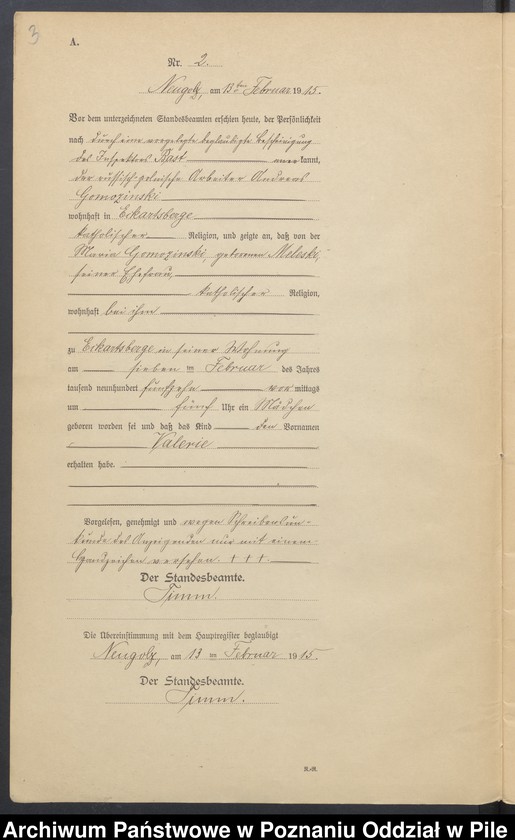 3
A.
Nr. 2.
Neugolz, am 13ten Februar 1915.
Vor dem unterzeichneten Standesbeamten erschien heute, der Persönlichkeit
nach durch eine vorgelegte beglaubigte Bescheinigung
des Inspektors Rast kannt,
der russisch-polnische Arbeiter Andreas
Gomozinski
wohnhaft in Eckartsberge
katholischer Religion, und zeigte an, daß von der
Maria Gomozinski, geborenen Meleski,
seiner Ehefrau,
katholischer Religion,
wohnhaft bei ihm
zu Eckartsberge in seiner Wohnung
am sieben ten Februar des Jahres
tausend neunhundert fünfzehn vor mittags
um fünf Uhr ein Mädchen
geboren worden sei und daß das Kind den Vornamen
Valerie
erhalten habe.
Vorgelesen, genehmigt und wegen Schreibensun-
kunde des Anzeigenden nur mit einem
Handzeichen versehen. + + +.
Der Standesbeamte.
Timm.
Die Übereinstimmung mit dem Hauptregister beglaubigt
Neugolz, am 13 ten Februar 1915.
Der Standesbeamte.
Timm.
R.-R.
Archiwum Państwowe w Poznaniu Oddział w Pile